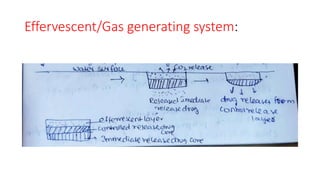 Effervescent/Gas generating system:
water surface
CO2 release
Released imediate
release drug
drug releases from
Control release
layer
effervescent layer
controlled release drug
core
Immediate release drug core